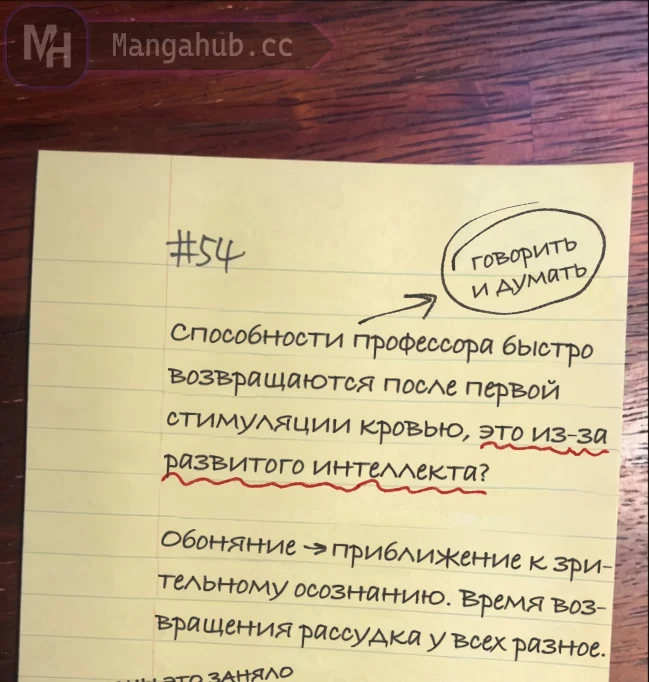 MH Mangahub.cc
#54
говорить
и думать
Способности профессора быстро
возвращаются после первой
стимуляции кровью, это из-за
развитого интеллекта?
Обоняние → приближение к зри-
тельному осознанию. Время воз-
вращения рассудка у всех разное.
это заняло